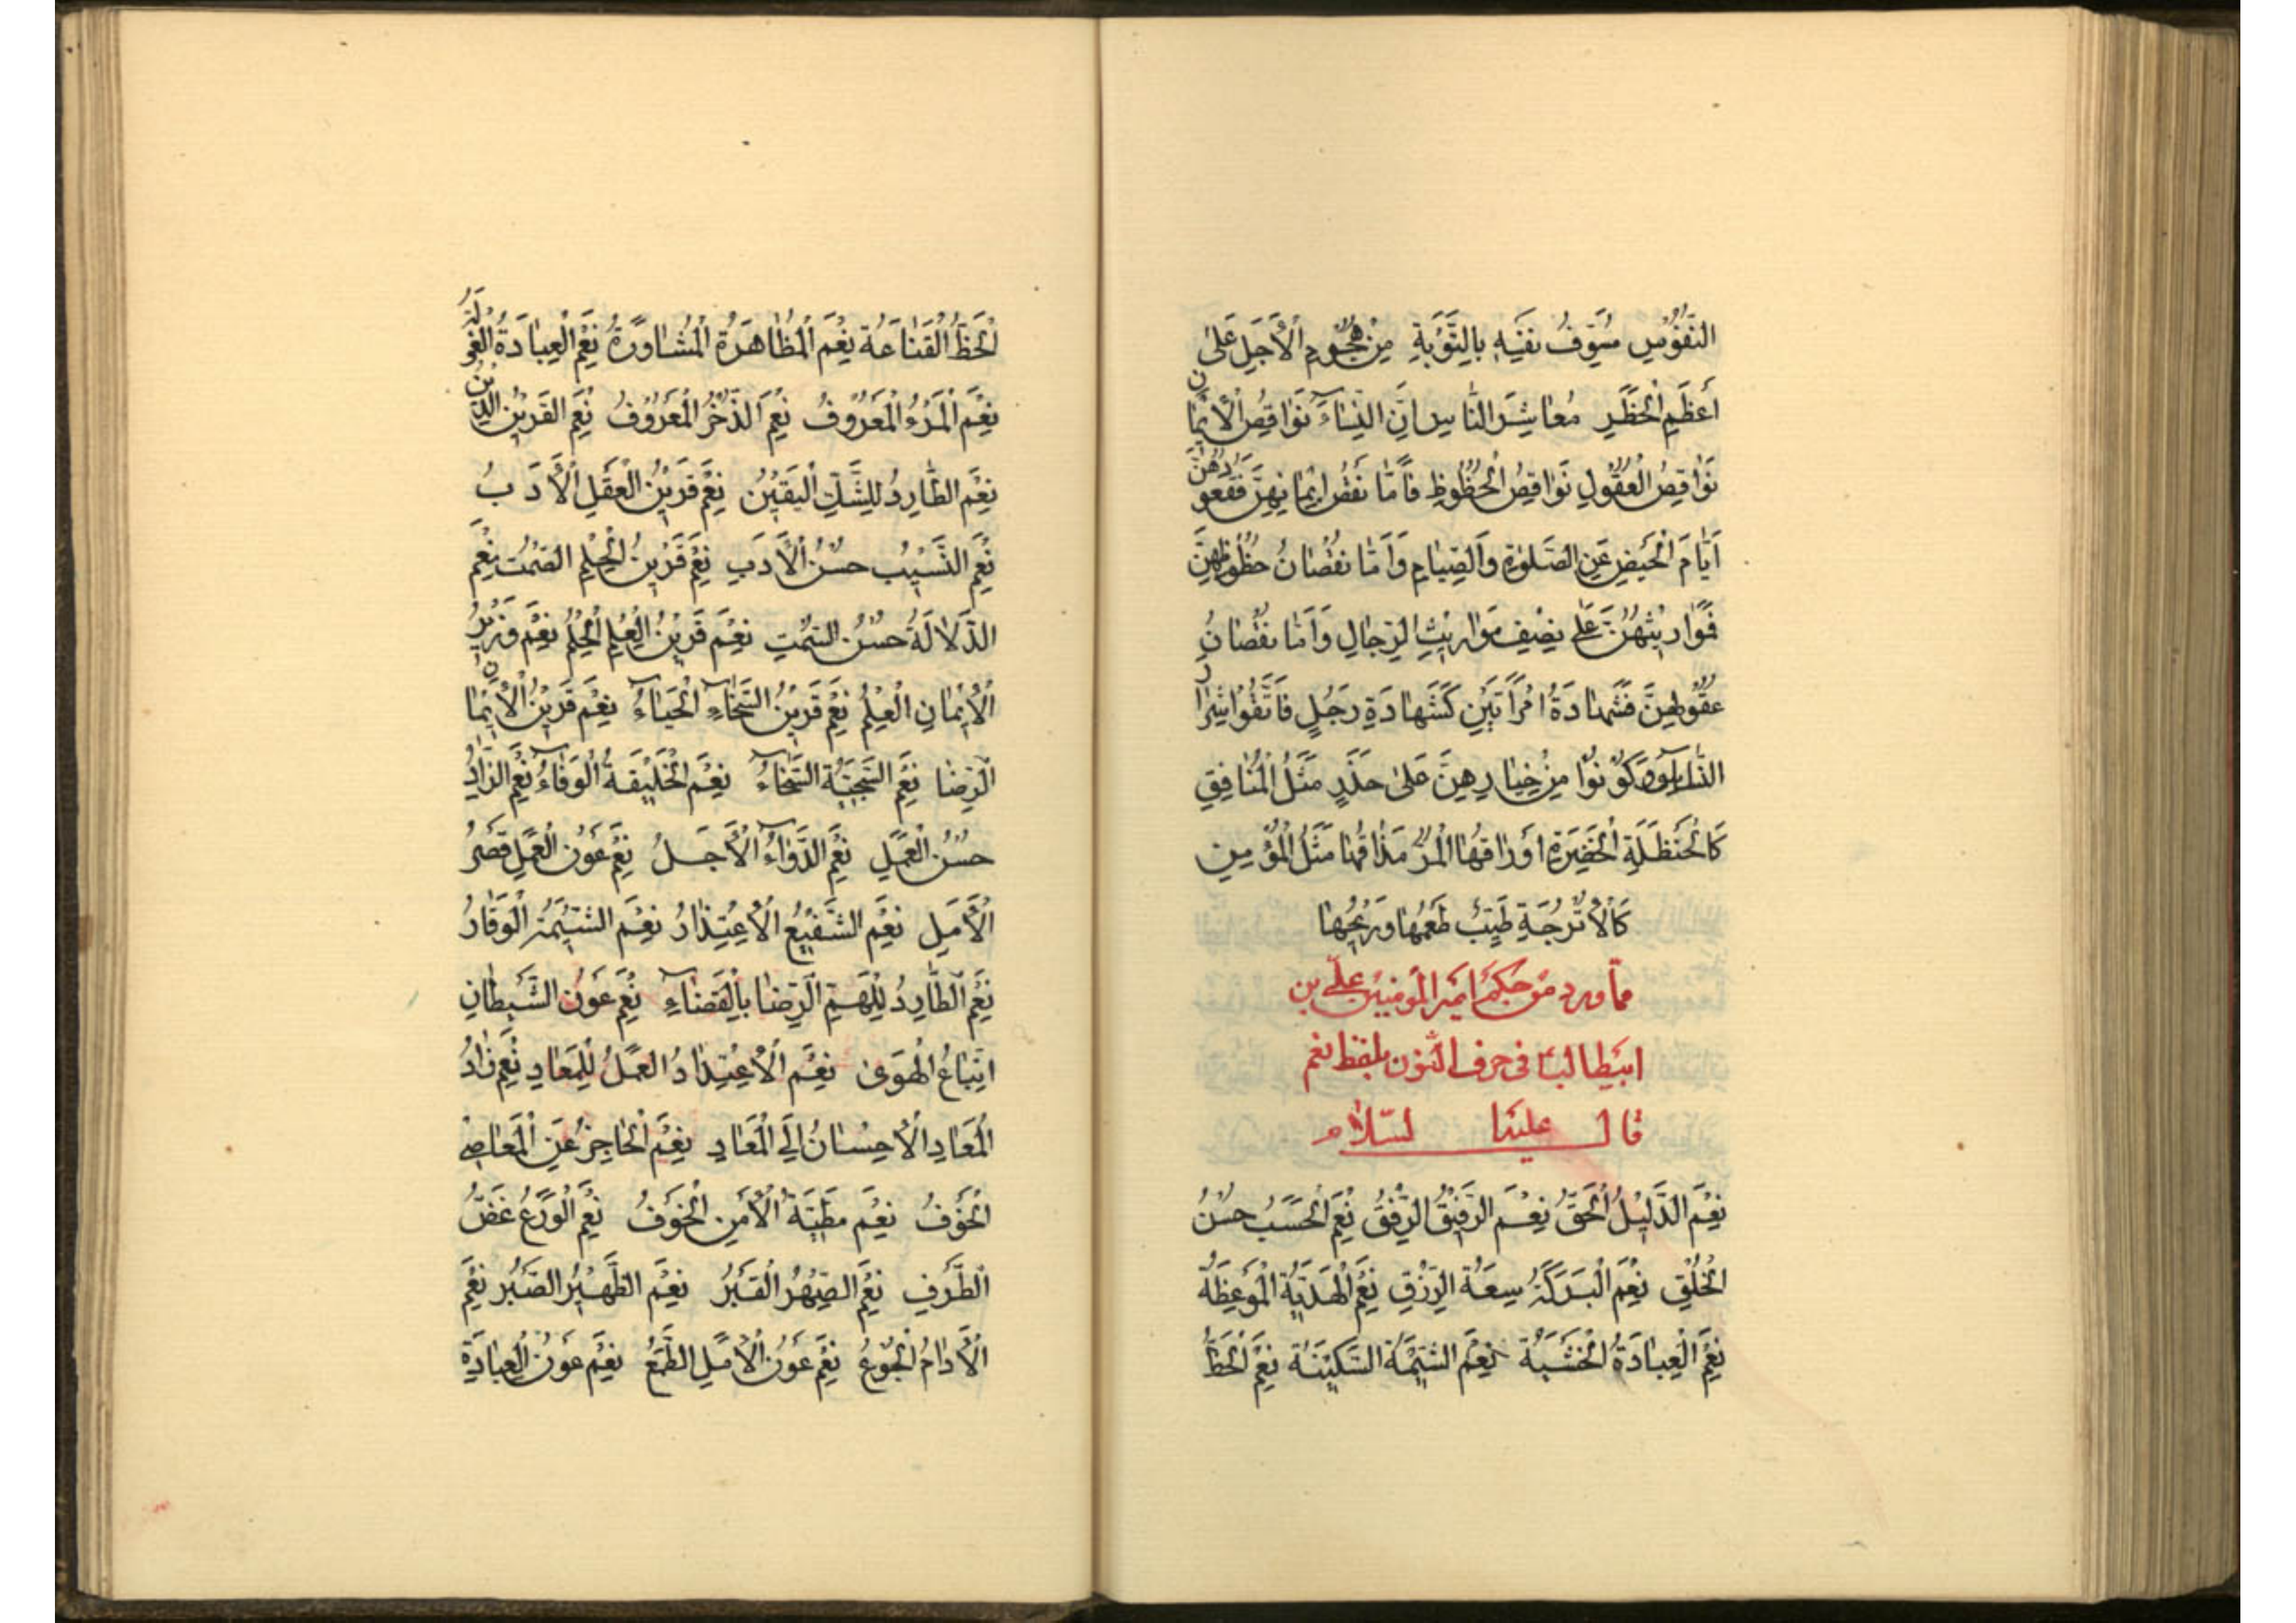 النُّفُوسِ مُسَوِّفُ نَفْسِهِ بِالتَّوْبَةِ مِنْ هُجُومِ الْأَجَلِ عَلَىٰ
أَعْظَمِ الْخَطَرِ مَعَاشِرَ النَّاسِ إِنَّ النِّسَاءَ نَوَاقِصُ الْإِيمَانِ
نَوَاقِصُ الْعُقُولِ نَوَاقِصُ الْحُظُوظِ فَأَمَّا نَقْصُ إِيمَانِهِنَّ فَقُعُودُهُنَّ
أَيَّامَ الْحَيْضِ عَنِ الصَّلَوٰةِ وَالصِّيَامِ وَأَمَّا نُقْصَانُ حُظُوظِهِنَّ
فَمَوَارِيثُهُنَّ عَلَى نِصْفِ مَوَارِيثِ الرِّجَالِ وَأَمَّا نُقْصَانُ
عُقُولِهِنَّ فَشَهَادَةُ امْرَأَتَيْنِ كَشَهَادَةِ رَجُلٍ فَاتَّقُوا شِرَارَ
النِّسَاءِ وَكُونُوا مِنْ خِيَارِهِنَّ عَلَىٰ حَذَرٍ مَثَلُ الْمُنَافِقِ
كَالْحَنْظَلَةِ الْخَضِرَةِ أَوْرَاقُهَا الْمُرِّ مَذَاقُهَا مَثَلُ الْمُؤْمِنِ
كَالْأُتْرُجَّةِ طَيِّبٌ طَعْمُهَا وَرِيحُهَا
مما ورد من حكم أمير المؤمنين علي بن
ابيطالب في حرف النون بلفظ نعم
قال عليه السلام
نِعْمَ الدَّلِيلُ الْحَقُّ نِعْمَ الرَّفِيقُ الرِّفْقُ نِعْمَ الْحَسَبُ حُسْنُ
الْخُلْقِ نِعْمَ الْبَرَكَةُ سِعَةُ الرِّزْقِ نِعْمَ الْهَدِيَّةُ الْمَوْعِظَةُ
نِعْمَ الْعِبَادَةُ الْخَشْيَةُ نِعْمَ الشِّيمَةُ السَّكِينَةُ نِعْمَ الْحَظُّ
الْحَظُّ الْقَنَاعَةُ نِعْمَ الْمُظَاهَرَةُ الْمُشَاوَرَةُ نِعْمَ الْعِبَادَةُ الْعُزْلَةُ
نِعْمَ الْمَرْءُ الْمَعْرُوفُ نِعْمَ الذُّخْرُ الْمَعْرُوفُ نِعْمَ الْقَرِينُ الدِّينُ
نِعْمَ الطَّارِدُ لِلشَّكِّ الْيَقِينُ نِعْمَ قَرِينُ الْعَقْلِ الْأَدَبُ
نِعْمَ النَّسِيبُ حُسْنُ الْأَدَبِ نِعْمَ قَرِينُ الْحِلْمِ الصَّمْتُ نِعْمَ
الدَّلَالَةُ حُسْنُ السَّمْتِ نِعْمَ قَرِينُ الْعِلْمِ الْحِلْمُ نِعْمَ وَزِيرُ
الْإِيمَانِ الْعِلْمُ نِعْمَ قَرِينُ السَّخَاءِ الْحَيَاءُ نِعْمَ قَرِينُ الْإِيمَانِ
الرِّضَا نِعْمَ السَّجِيَّةُ السَّخَاءُ نِعْمَ الْخَلِيقَةُ الْوَفَاءُ نِعْمَ الزَّادُ
حُسْنُ الْعَمَلِ نِعْمَ الدَّوَاءُ الْأَجَلُ نِعْمَ عَوْنُ الْعَمَلِ قَصْرُ
الْأَمَلِ نِعْمَ الشَّفِيعُ الْاِعْتِذَارُ نِعْمَ الشِّيمَةُ الْوَقَارُ
نِعْمَ الطَّارِدُ لِلْهَمِّ الرِّضَا بِالْقَضَاءِ نِعْمَ عَوْنُ الشَّيْطَانِ
اتِّبَاعُ الْهَوَىٰ نِعْمَ الْاِعْتِدَادُ الْعَمَلُ لِلْمَعَادِ نِعْمَ زَادُ
الْمَعَادِ الْإِحْسَانُ إِلَى الْعِبَادِ نِعْمَ الْحَاجِزُ عَنِ الْمَعَاصِي
الْخَوْفُ نِعْمَ مَطِيَّةُ الْأَمْنِ الْخَوْفُ نِعْمَ الْوَرَعُ غَضُّ
الطَّرْفِ نِعْمَ الصِّهْرُ الْقَبْرُ نِعْمَ الظَّهِيرُ الصَّبْرُ نِعْمَ
الْإِدَامُ الْجُوعُ نِعْمَ عَوْنُ الْأَمَلِ الطَّمَعُ نِعْمَ عَوْنُ الْعِبَادَةِ